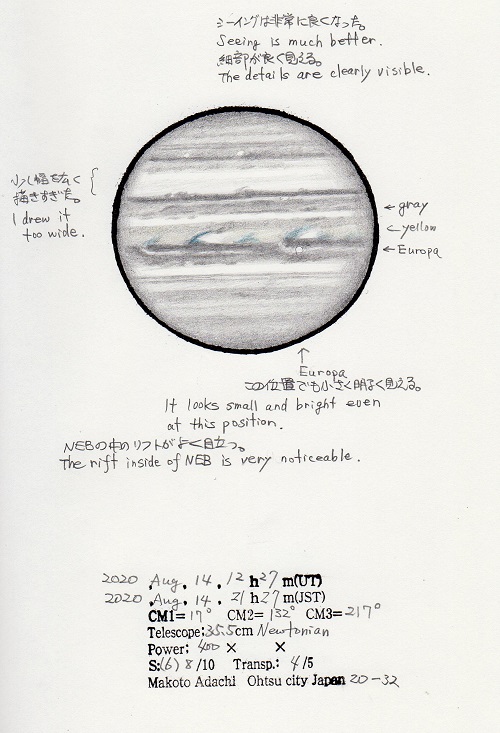 シーイングは非常に良くなった。
Seeing is much better.
細部が良く見える。
The details are clearly visible.
少し幅を広く
描きすぎた。
I drew it
too wide.
← gray
← yellow
← Europa
↑
Europa
この位置でも小さく明るく見える。
It looks small and bright even
at this position.
NEBの中のリフトがよく目立つ。
The rift inside of NEB is very noticeable.
2020 , Aug , 14 , 12 h 27 m(UT)
2020 , Aug , 14 , 21 h 27 m(JST)
CM1= 17° CM2= 132° CM3= 217°
Telescope: 35.5cm Newtonian
Power: 400 × ×
S:(6) 8 /10 Transp.: 4 /5
Makoto Adachi Ohtsu city Japan 20-32